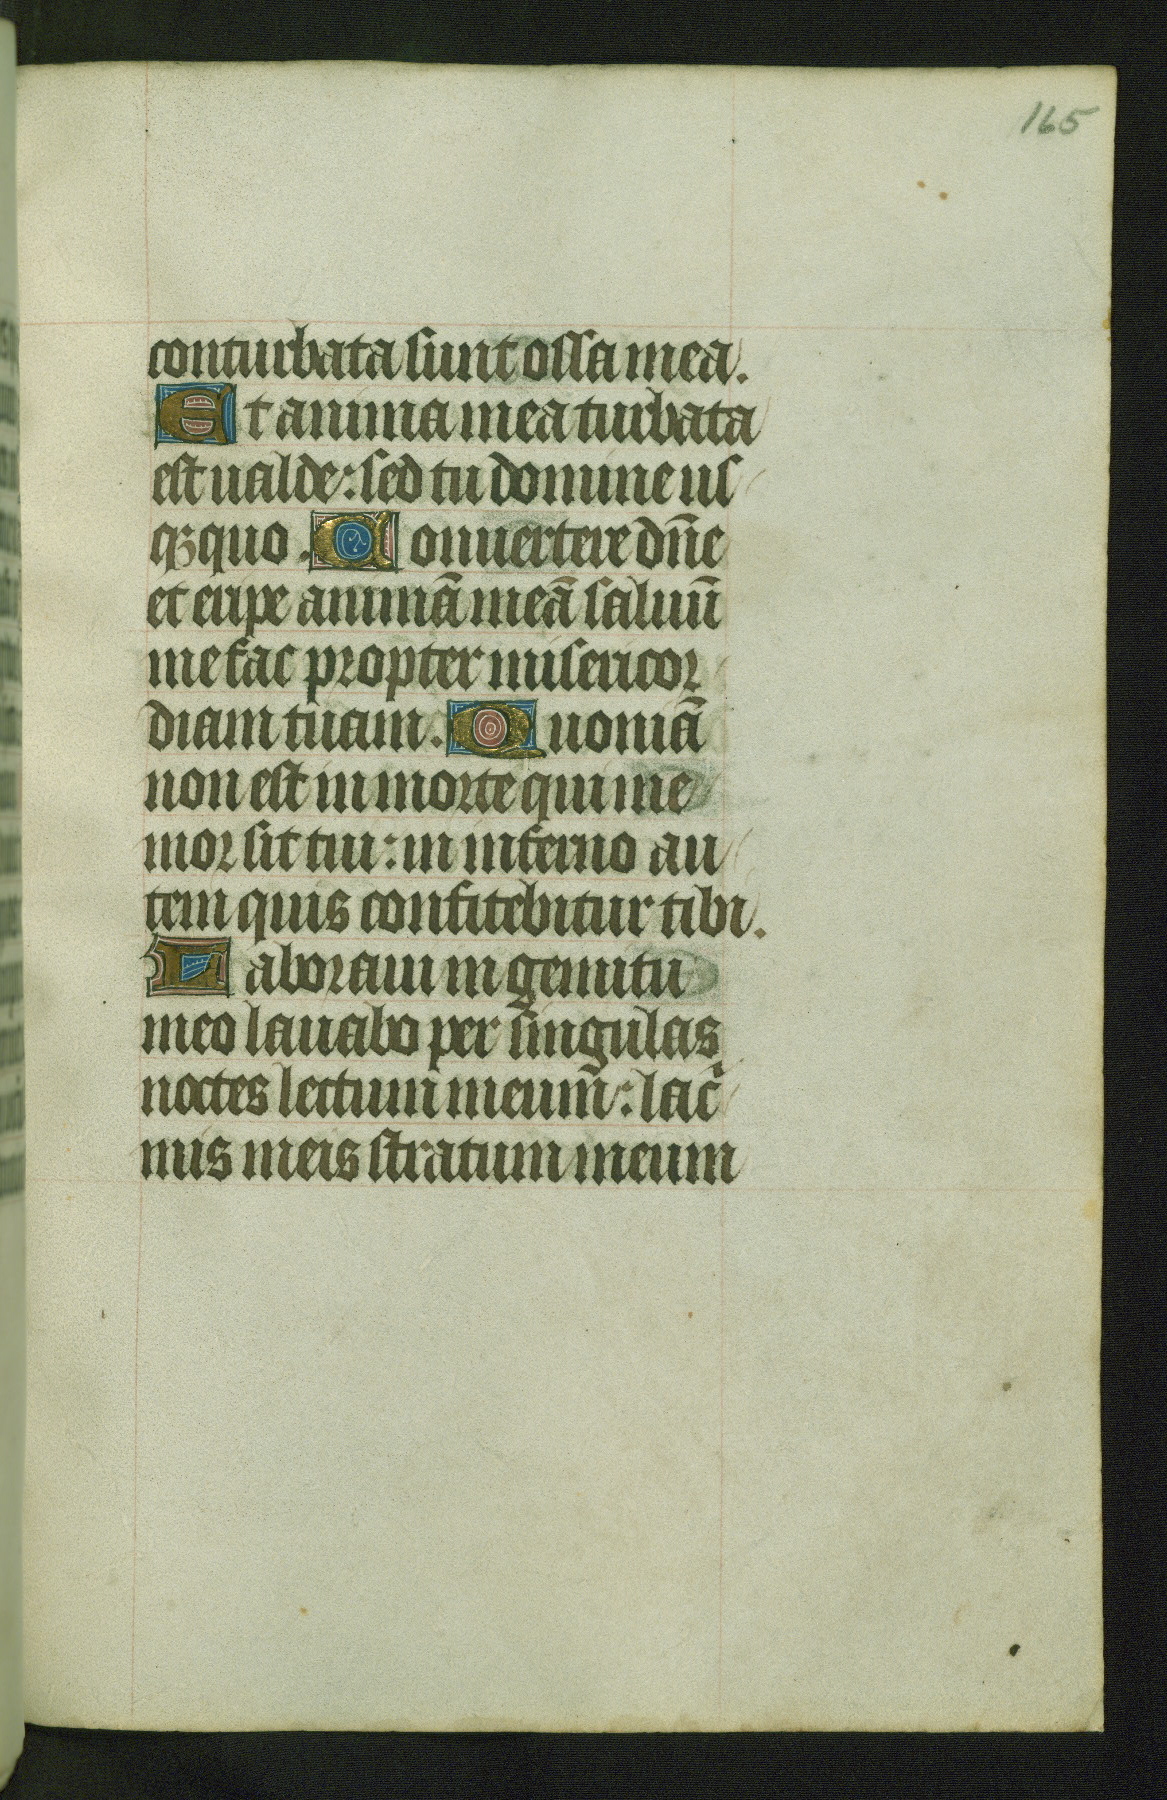 165
conturbata sunt ossa mea.
Et anima mea turbata
est ualde: sed tu domine us
qȝ quo. Conuertere dn̄e
et eripe animā meā saluū
me fac propter misericor
diam tuam. Quoniā
non est in morte qui me
mor sit tui: in inferno au
tem quis confitebitur tibi.
Laboraui in gemitu
meo lauabo per singulas
noctes lectum meum: lac̄
mis meis stratum meum